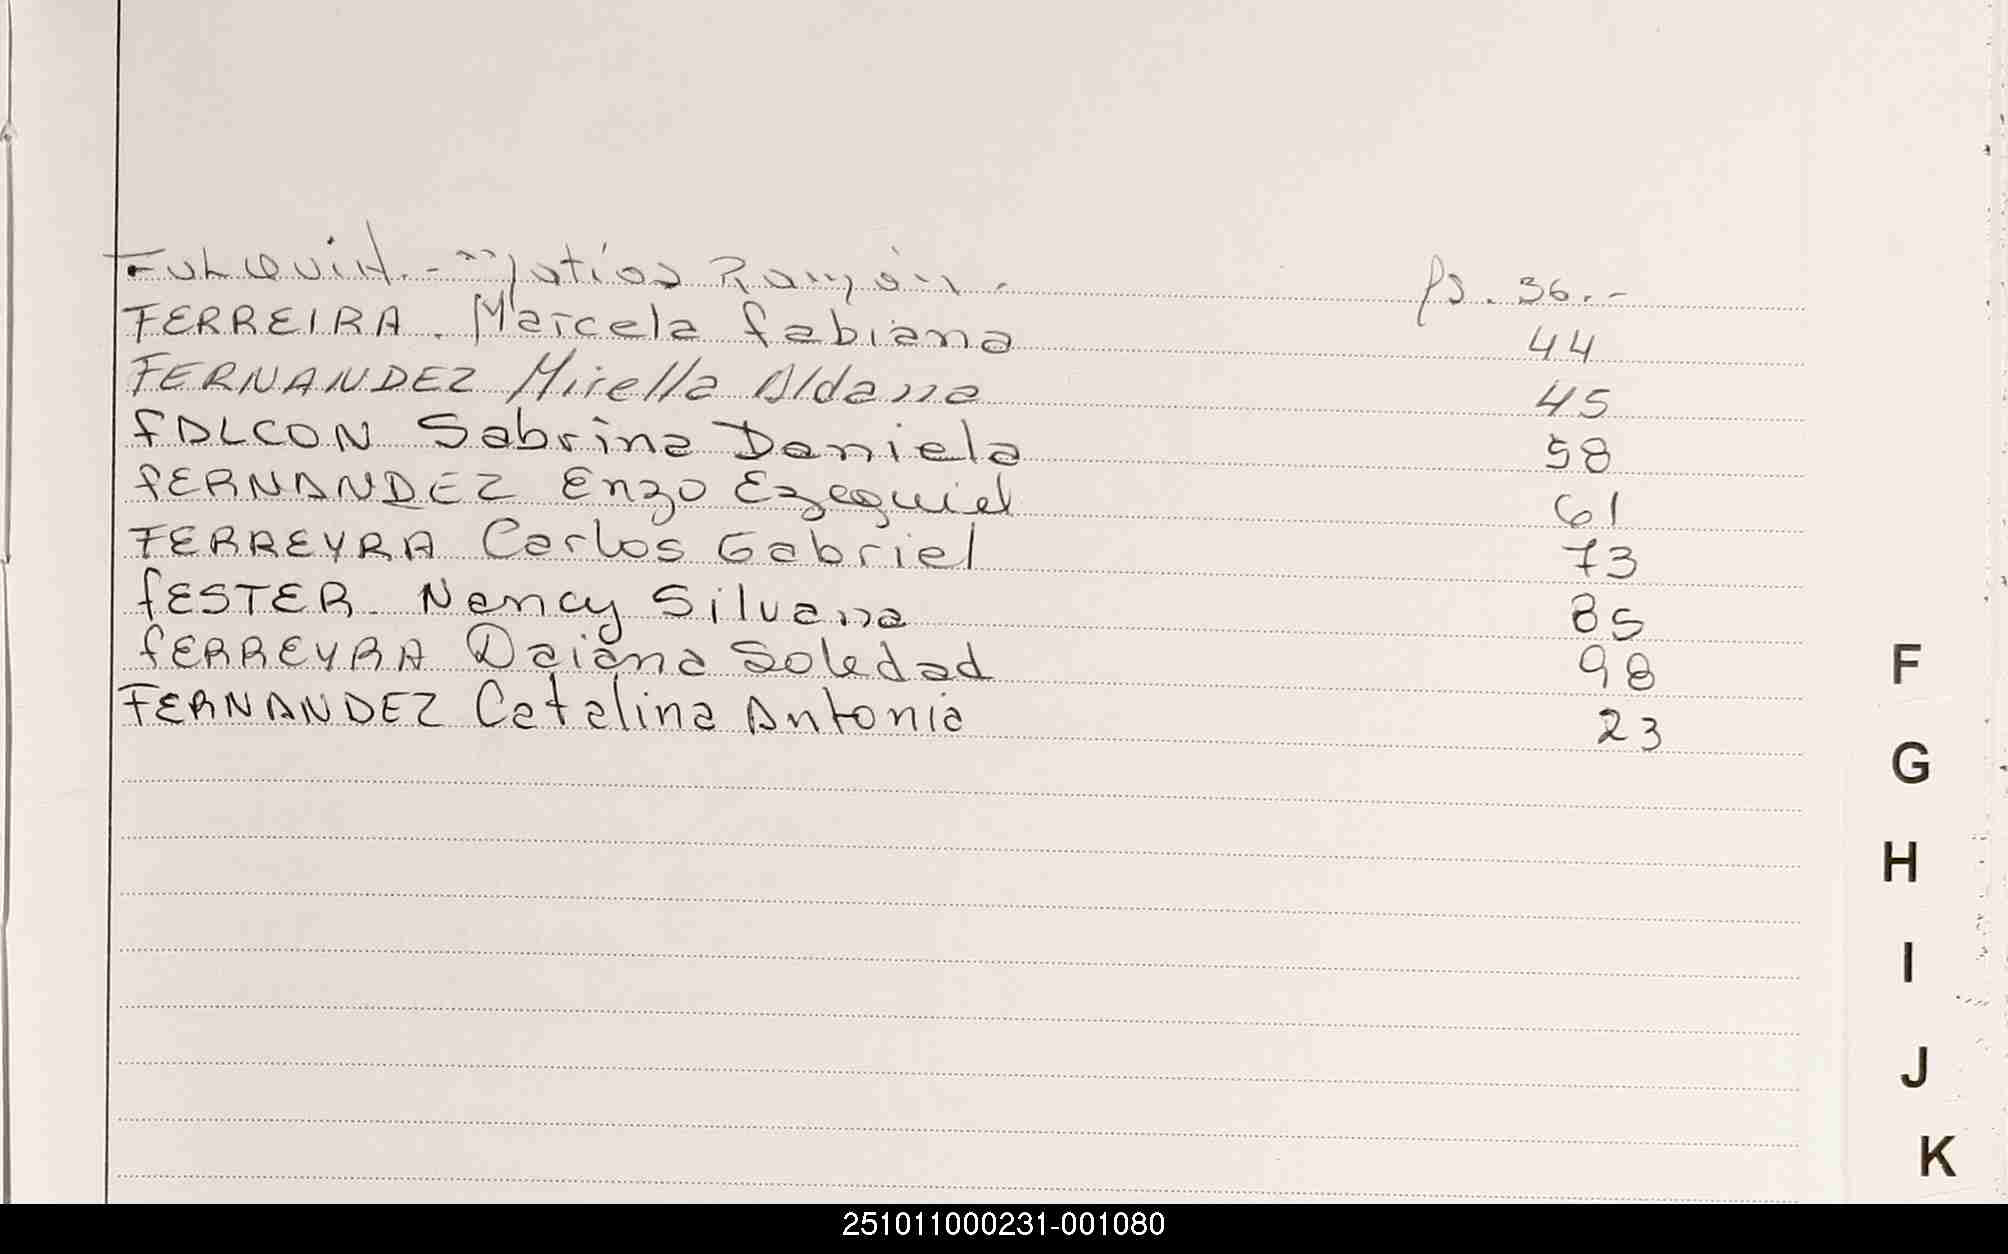 FULQUIN.- Matías Ramón.- fs. 36.-
FERREIRA. Marcela fabiana 44
FERNANDEZ Mirella Aldana 45
fALCON Sabrina Daniela 58
fERNANDEZ Enzo Ezequiel 61
FERREYRA Carlos Gabriel 73
fESTER. Nancy Silvana 85
fERREYRA Daiana Soledad 98
FERNANDEZ Catalina Antonia 23
F
G
H
I
J
K
251011000231-001080